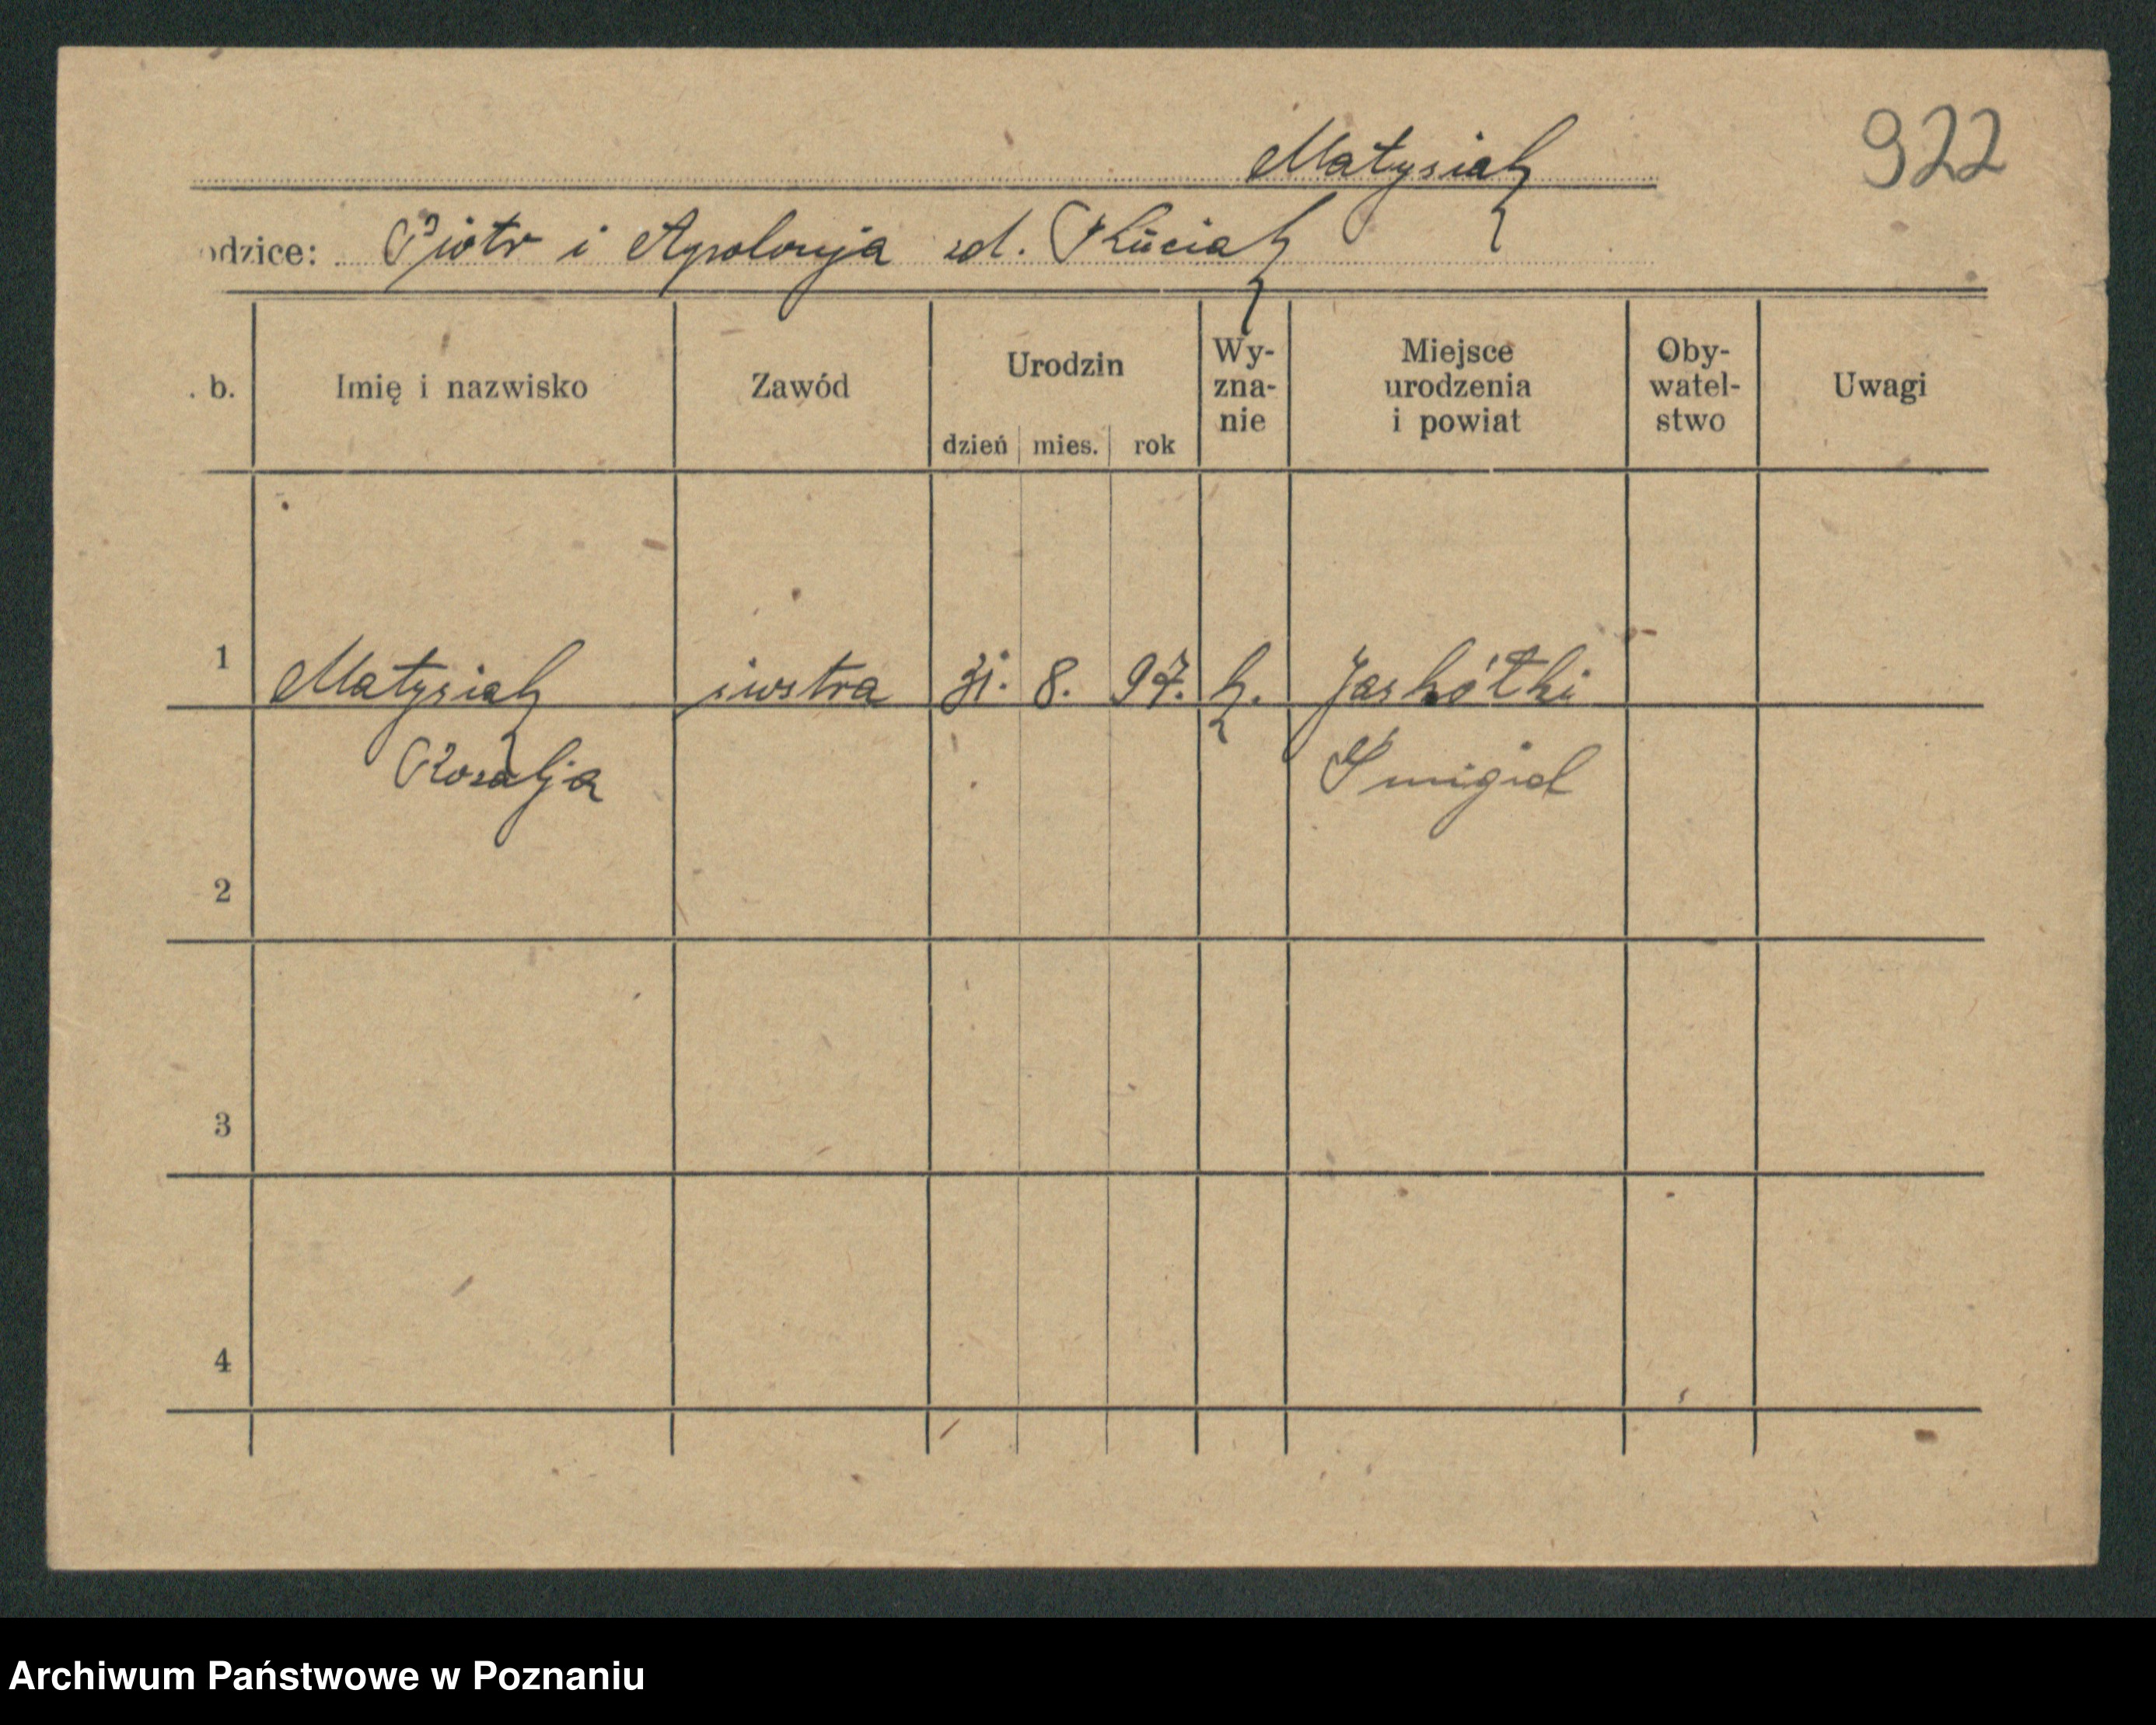 Matysiak
922
odzice: Piotr i Apolonja zd. Kuciak
. b.
Imię i nazwisko
Zawód
Urodzin
dzień
mies.
rok
Wy-
zna-
nie
Miejsce
urodzenia
i powiat
Oby-
watel-
stwo
Uwagi
1 Matysiak siostra 31. 8. 97. k. Jaskółki
Rozalja Śmigiel
2
3
4
Archiwum Państwowe w Poznaniu